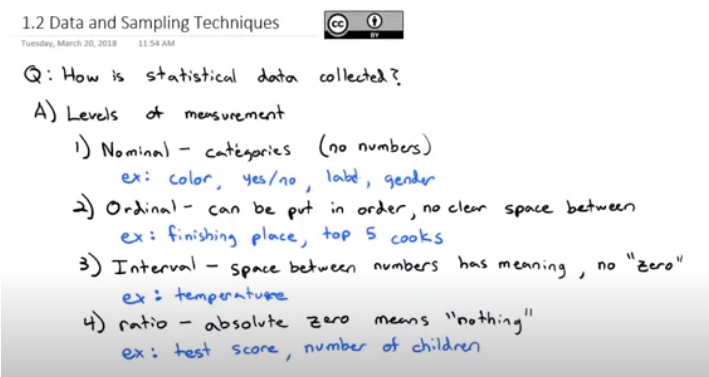 1.2 Data and Sampling Techniques
cc BY
Tuesday, March 20, 2018 11:54 AM
Q: How is statistical data collected?
A) Levels of measurement
1) Nominal - categories (no numbers)
ex: color, yes/no, label, gender
2) Ordinal - can be put in order, no clear space between
ex: finishing place, top 5 cooks
3) Interval - space between numbers has meaning, no "zero"
ex: temperature
4) ratio - absolute zero means "nothing"
ex: test score, number of children